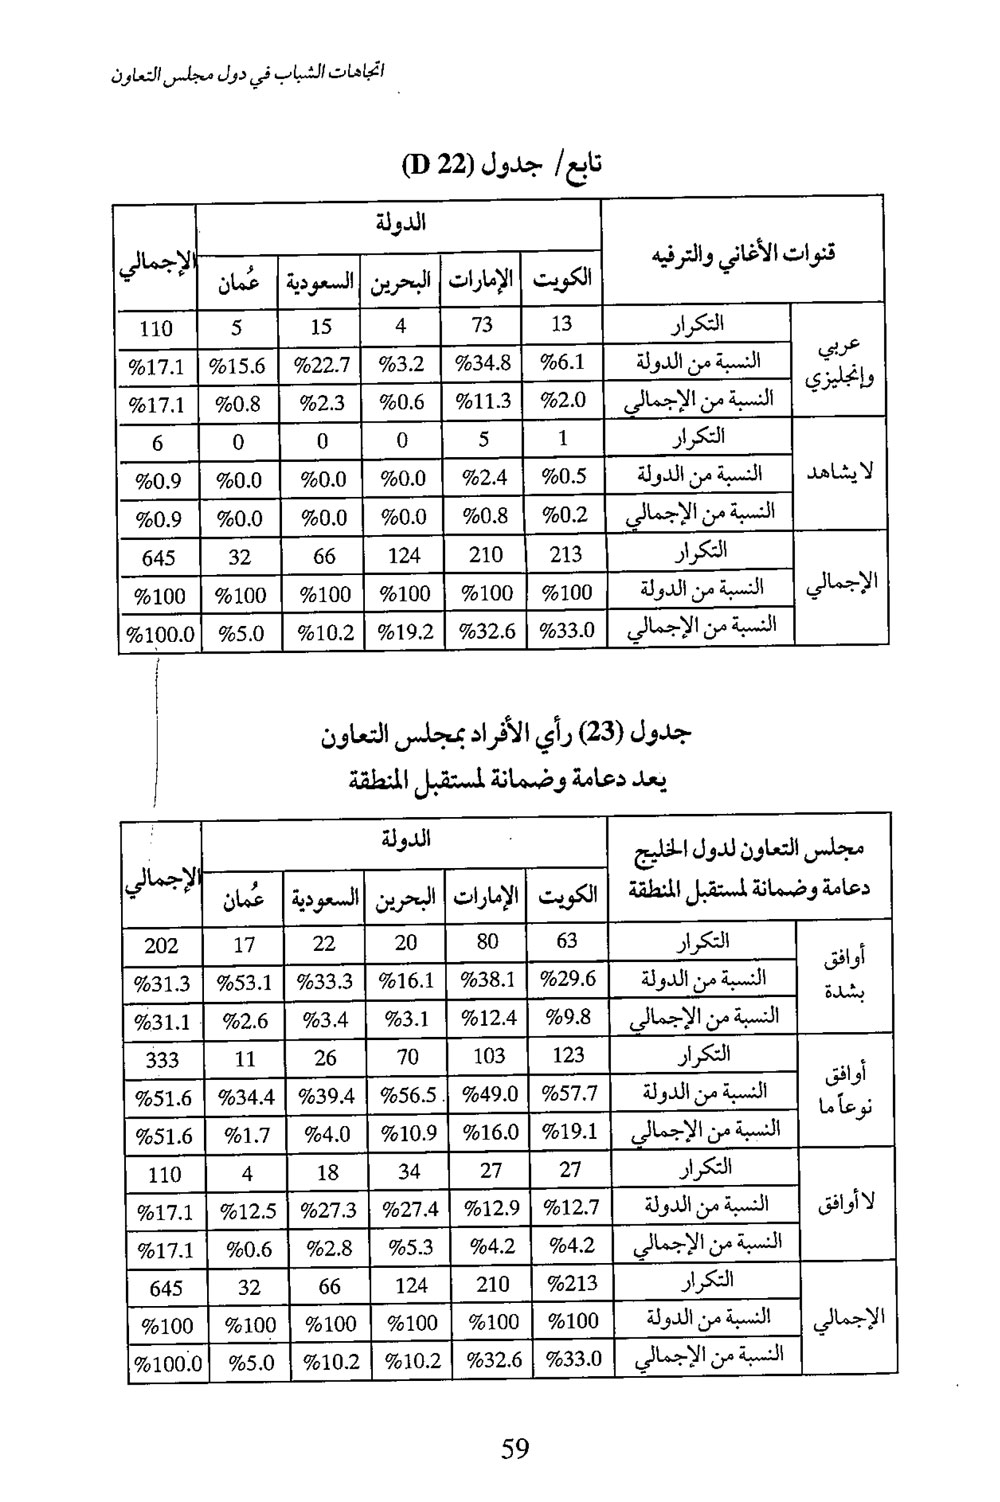 اتجاهات الشباب في دول مجلس التعاون
تابع/ جدول (22 D)
قنوات الأغاني والترفيه الدولة الإجمالي
الكويت الإمارات البحرين السعودية عُمان
عربي وإنجليزي التكرار 13 73 4 15 5 110
النسبة من الدولة %6.1 %34.8 %3.2 %22.7 %15.6 %17.1
النسبة من الإجمالي %2.0 %11.3 %0.6 %2.3 %0.8 %17.1
لا يشاهد التكرار 1 5 0 0 0 6
النسبة من الدولة %0.5 %2.4 %0.0 %0.0 %0.0 %0.9
النسبة من الإجمالي %0.2 %0.8 %0.0 %0.0 %0.0 %0.9
الإجمالي التكرار 213 210 124 66 32 645
النسبة من الدولة %100 %100 %100 %100 %100 %100
النسبة من الإجمالي %33.0 %32.6 %19.2 %10.2 %5.0 %100.0
جدول (23) رأي الأفراد بمجلس التعاون
يعد دعامة وضمانة لمستقبل المنطقة
مجلس التعاون لدول الخليج الدولة الإجمالي
دعامة وضمانة لمستقبل المنطقة الكويت الإمارات البحرين السعودية عُمان
أوافق بشدة التكرار 63 80 20 22 17 202
النسبة من الدولة %29.6 %38.1 %16.1 %33.3 %53.1 %31.3
النسبة من الإجمالي %9.8 %12.4 %3.1 %3.4 %2.6 %31.1
أوافق نوعاً ما التكرار 123 103 70 26 11 333
النسبة من الدولة %57.7 %49.0 %56.5 %39.4 %34.4 %51.6
النسبة من الإجمالي %19.1 %16.0 %10.9 %4.0 %1.7 %51.6
لا أوافق التكرار 27 27 34 18 4 110
النسبة من الدولة %12.7 %12.9 %27.4 %27.3 %12.5 %17.1
النسبة من الإجمالي %4.2 %4.2 %5.3 %2.8 %0.6 %17.1
الإجمالي التكرار %213 210 124 66 32 645
النسبة من الدولة %100 %100 %100 %100 %100 %100
النسبة من الإجمالي %33.0 %32.6 %10.2 %10.2 %5.0 %100.0
59